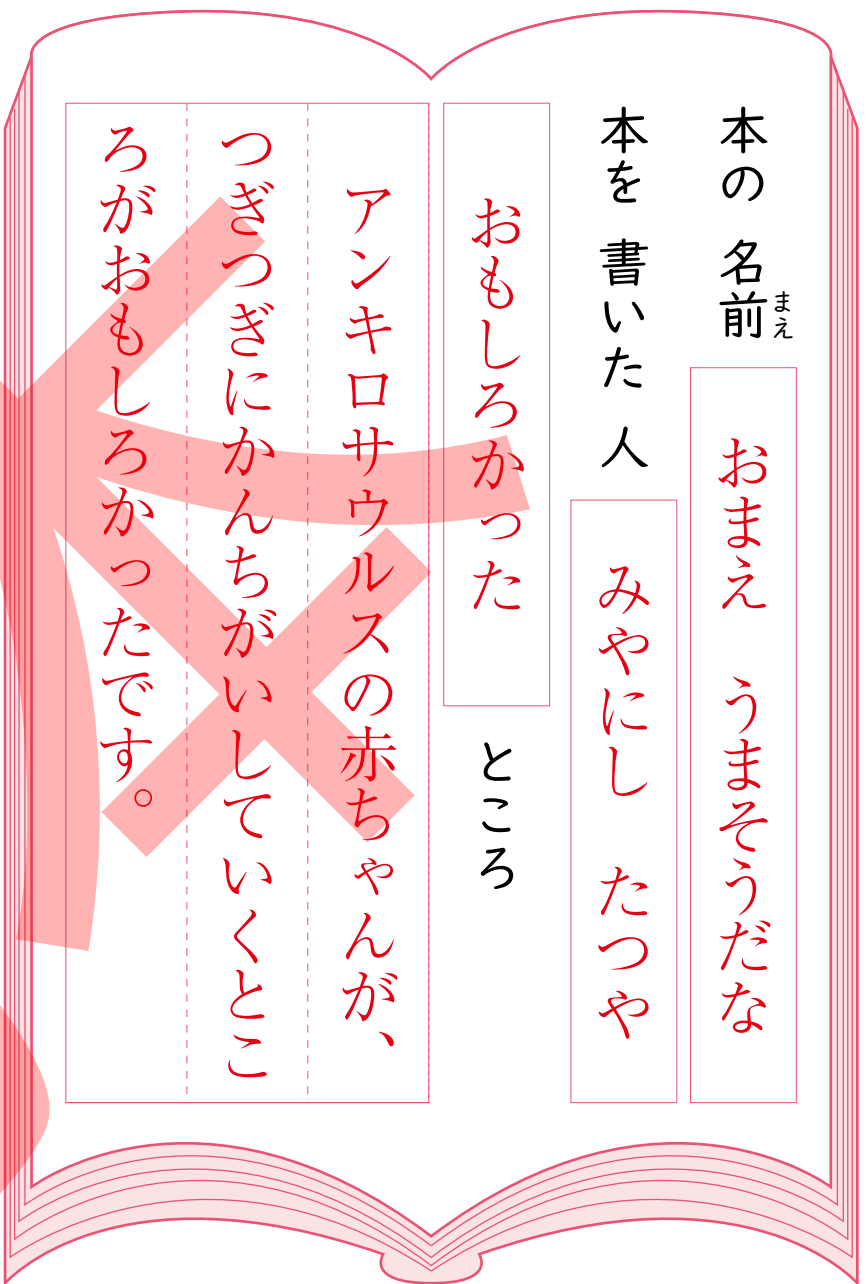 本の 名前 おまえ うまそうだな
まえ
本を 書いた 人 みやにし たつや
おもしろかった ところ
アンキロサウルスの赤ちゃんが、
つぎつぎにかんちがいしていくとこ
ろがおもしろかったです。